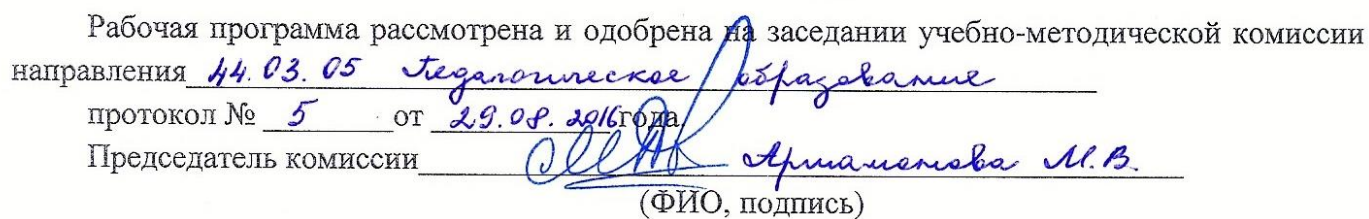 Рабочая программа рассмотрена и одобрена на заседании учебно-методической комиссии
направления 44.03.05 Педагогическое образование
протокол № 5 от 29.08.2016 года
Председатель комиссии Артамонова М.В.
(ФИО, подпись)